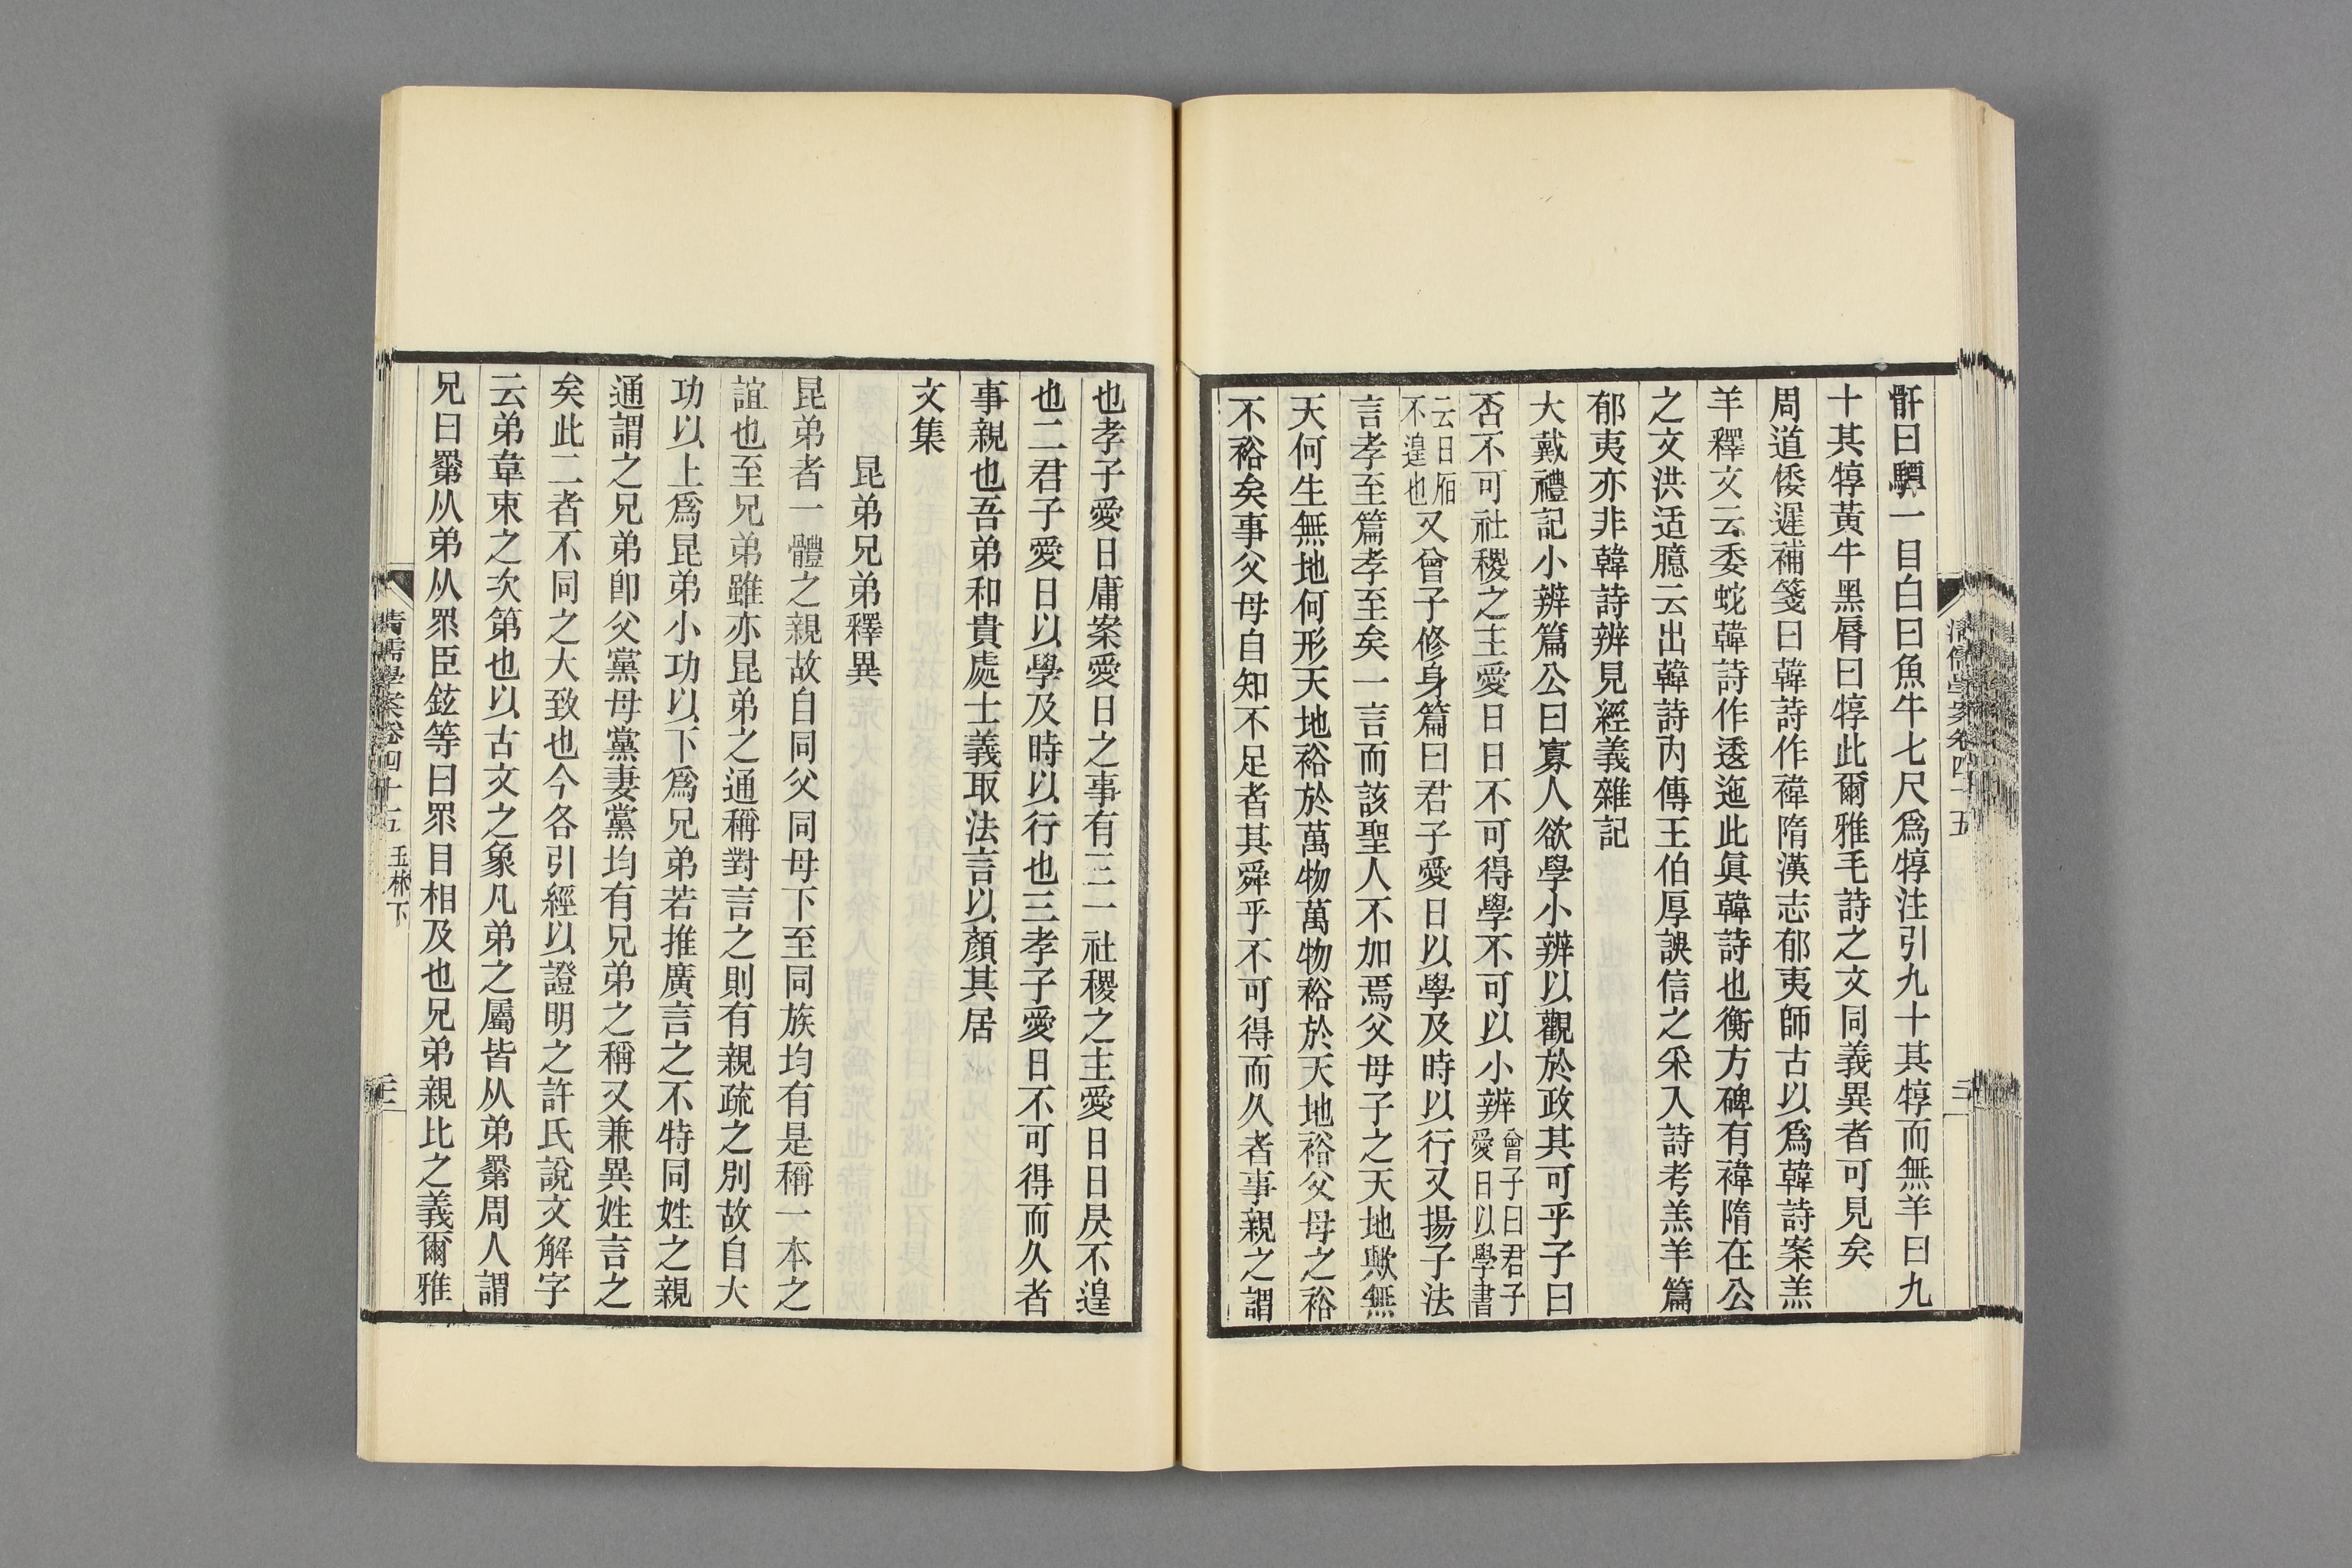 骭曰驔一目白曰魚牛七尺爲犉注引九十其犉而無羊曰九
十其犉黃牛黑脣曰犉此爾雅毛詩之文同義異者可見矣
周道倭遲補箋曰韓詩作禕隋漢志郁夷師古以爲韓詩案羔
羊釋文云委蛇韓詩作逶迤此眞韓詩也衡方碑有禕隋在公
之文洪适臆云出韓詩內傳王伯厚誤信之采入詩考羔羊篇
郁夷亦非韓詩辨見經義雜記
大戴禮記小辨篇公曰寡人欲學小辨以觀於政其可乎子曰
否不可社稷之主愛日日不可得學不可以小辨曾子曰君子愛日以學書
云日𣅳不遑也又曾子修身篇曰君子愛日以學及時以行又揚子法
言孝至篇孝至矣一言而該聖人不加焉父母子之天地歟無
天何生無地何形天地裕於萬物萬物裕於天地裕父母之裕
不裕矣事父母自知不足者其舜乎不可得而久者事親之謂
清儒學案卷四十五
三
也孝子愛日庸案愛日之事有三一社稷之主愛日日昃不遑
也二君子愛日以學及時以行也三孝子愛日不可得而久者
事親也吾弟和貴處士義取法言以顏其居
文集
昆弟兄弟釋異
昆弟者一體之親故自同父同母下至同族均有是稱一本之
誼也至兄弟雖亦昆弟之通稱對言之則有親疏之別故自大
功以上爲昆弟小功以下爲兄弟若推廣言之不特同姓之親
通謂之兄弟卽父黨母黨妻黨均有兄弟之稱又兼異姓言之
矣此二者不同之大致也今各引經以證明之許氏說文解字
云弟韋束之次第也以古文之象凡弟之屬皆从弟䍏周人謂
兄曰䍏从弟从眔臣鉉等曰眔目相及也兄弟親比之義爾雅
清儒學案卷四十五 玉林下
三